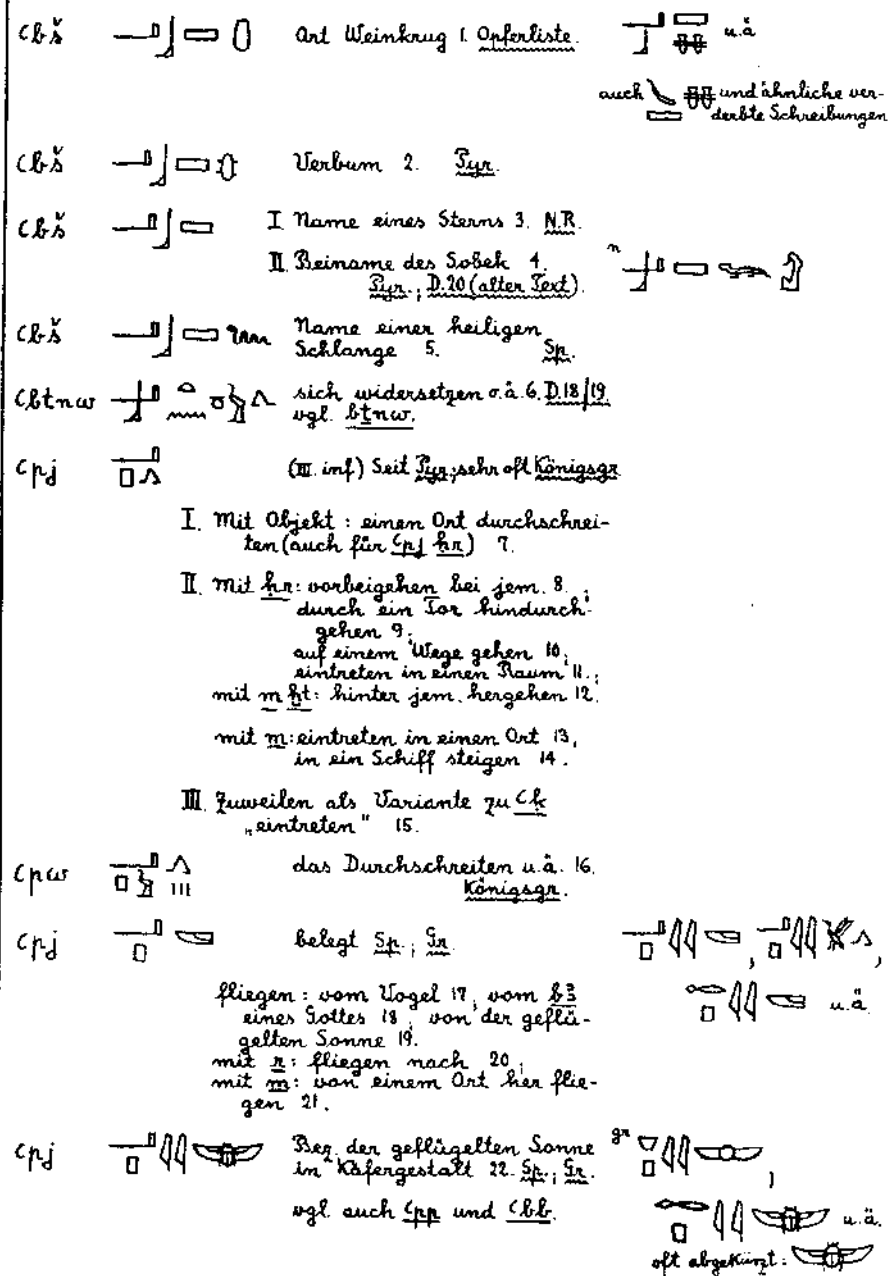 ꜥbš 𓂝𓃀𓈙𓏊 Art Weinkrug 1. Opferliste. u.ä
auch und ähnliche ver-
derbte Schreibungen
ꜥbš Verbum 2. Pyr.
ꜥbš I Name eines Sterns 3. N.R.
II. Beiname des Sobek 4. n
Pyr.; D.20 (alter Text).
ꜥbš Name einer heiligen
Schlange 5. Sp.
ꜥbtnw sich widersetzen o.ä. 6. D.18/19.
vgl. bṯnw.
ꜥpj (III. inf) Seit Pyr; sehr oft Königsgr
I. Mit Objekt: einen Ort durchschrei-
ten (auch für ꜥpj ḥr) 7.
II. mit ḥr: vorbeigehen bei jem. 8.;
durch ein Tor hindurch-
gehen 9;
auf einem Wege gehen 10;
eintreten in einen Raum 11.;
mit m ḫt: hinter jem. hergehen 12.
mit m: eintreten in einen Ort 13,
in ein Schiff steigen 14.
III. Zuweilen als Variante zu ꜥḳ
„eintreten" 15.
ꜥpw das Durchschreiten u.ä. 16.
Königsgr.
ꜥpj belegt Sp.; Gr. , ,
u.ä
fliegen: vom Vogel 17, vom bꜣ
eines Gottes 18, von der geflü-
gelten Sonne 19.
mit r: fliegen nach 20;
mit m: von einem Ort her flie-
gen 21.
ꜥpj Bez. der geflügelten Sonne gr ,
in Käfergestalt 22. Sp.; Gr.
vgl. auch ꜥpp und ꜥbb. u.ä.
oft abgekürzt: